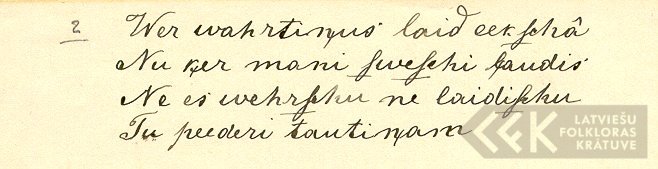 2 Wer wahrtiņus laid eekschâ
Nu ķer mani sweschi ļaudis
Ne es wehrschu ne laidischu
Tu peederi tautiņam
LATVIEŠU
FOLKLORAS
KRĀTUVE